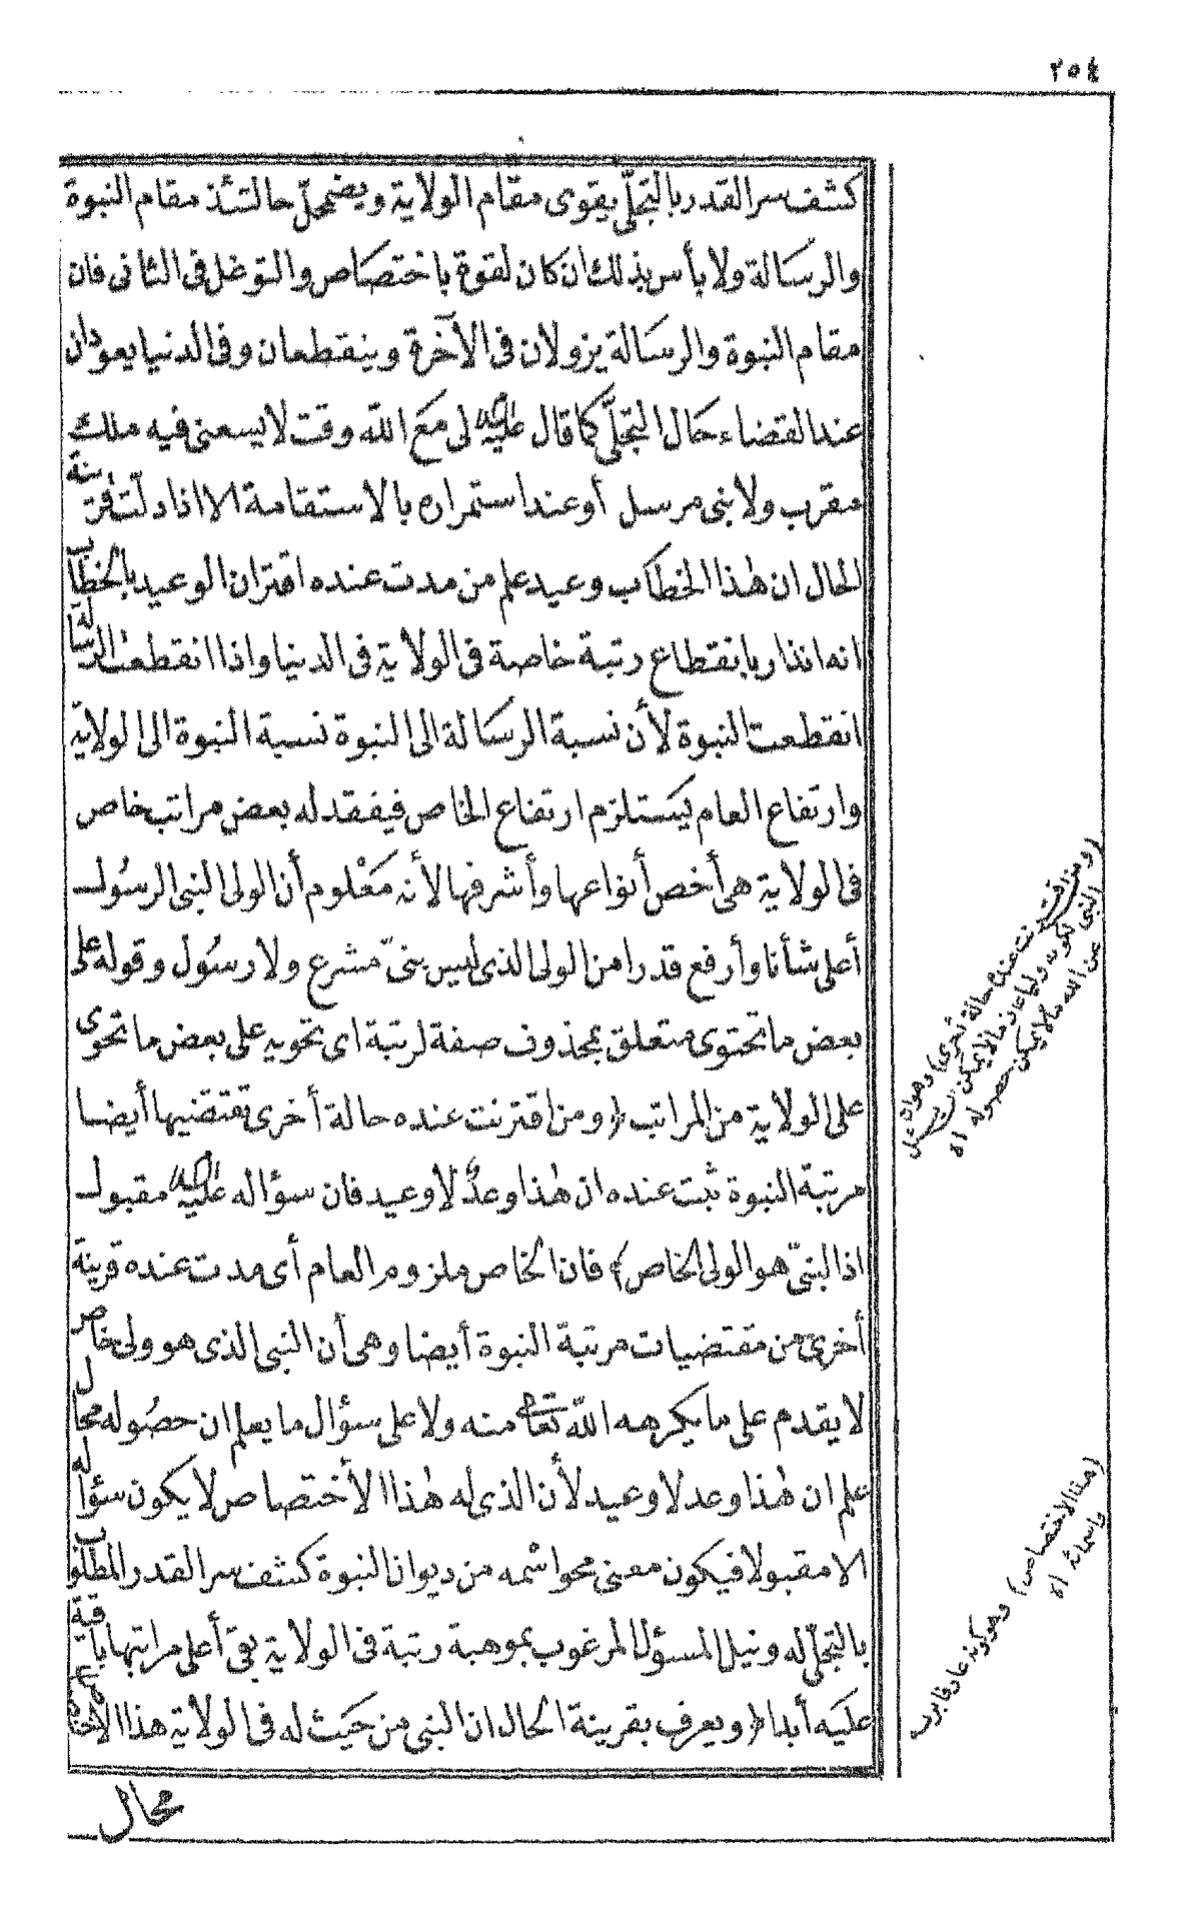 ٢٥٤
كشف سر القدر بالتجلّى يقوى مقام الولاية ويضمحلّ حالتئذ مقام النبوة
والرسالة ولا بأس بذلك ان كان لقوة باختصاص والتوغل فى الثانى فان
مقام النبوة والرسالة يزولان فى الآخرة وينقطعان وفى الدنيا يعودان
عند القضاء حال التجلّى كما قال عليه لى مع الله وقت لا يسعنى فيه ملك
مقرب ولا نبى مرسل أو عند استمراره بالاستقامة الا اذا دلّت قرينة
الحال ان هٰذا الخطاب وعيد علم من مدت عنده اقتران الوعيد بالخطاب
انه انذار بانقطاع رتبة خاصة فى الولاية فى الدنيا واذا انقطعت الرسالة
انقطعت النبوة لأن نسبة الرسالة الى النبوة نسبة النبوة الى الولاية
وارتفاع العام يستلزم ارتفاع الخاص فيفقد له بعض مراتب خاص
فى الولاية هى أخص أنواعها وأشرفها لأنه معلوم أن الولى النبى الرسول
أعلى شأنا وأرفع قدرا من الولى الذى ليس بنىّ مشرع ولا رسول وقوله على
بعض ما تحتوى متعلق بمحذوف صفة لرتبة اى تحويه على بعض ما تحوى
على الولاية من المراتب (ومن اقترنت عنده حالة أخرى تقتضيها أيضا
مرتبة النبوة ثبت عنده ان هٰذا وعدٌ لا وعيد فان سؤاله عليه مقبول
اذ النبىّ هو الولى الخاص) فان الخاص ملزوم العام أى مدت عنده قرينة
أخرى من مقتضيات مرتبة النبوة أيضا وهى أن النبى الذى هو ولى خاص
لا يقدم على ما يكرهه الله تعالى منه ولا على سؤال ما يعلم ان حصوله محال
علم ان هٰذا وعد لا وعيد لأن الذى له هٰذا الأختصاص لا يكون سؤاله
الا مقبولا فيكون معنى محو اسمه من ديوان النبوة كشف سر القدر المطلوب
بالتجلّى له ونيل المسؤل المرغوب بموهبة رتبة فى الولاية بقى أعلى مراتبها باقية
عليه أبدا (ويعرف بقرينة الحال ان النبى من حيث له فى الولاية هذا الاختصاص
محال
(ومن اقترنت عنده حالة أخرى) وهو ان
النبى لكونه وليا عارفا لا يمكن ان يسئل
عن الله ما لا يمكن حصوله اه
(هذا الاختصاص) وهو كونه عارفا بربه
واسمائه اه